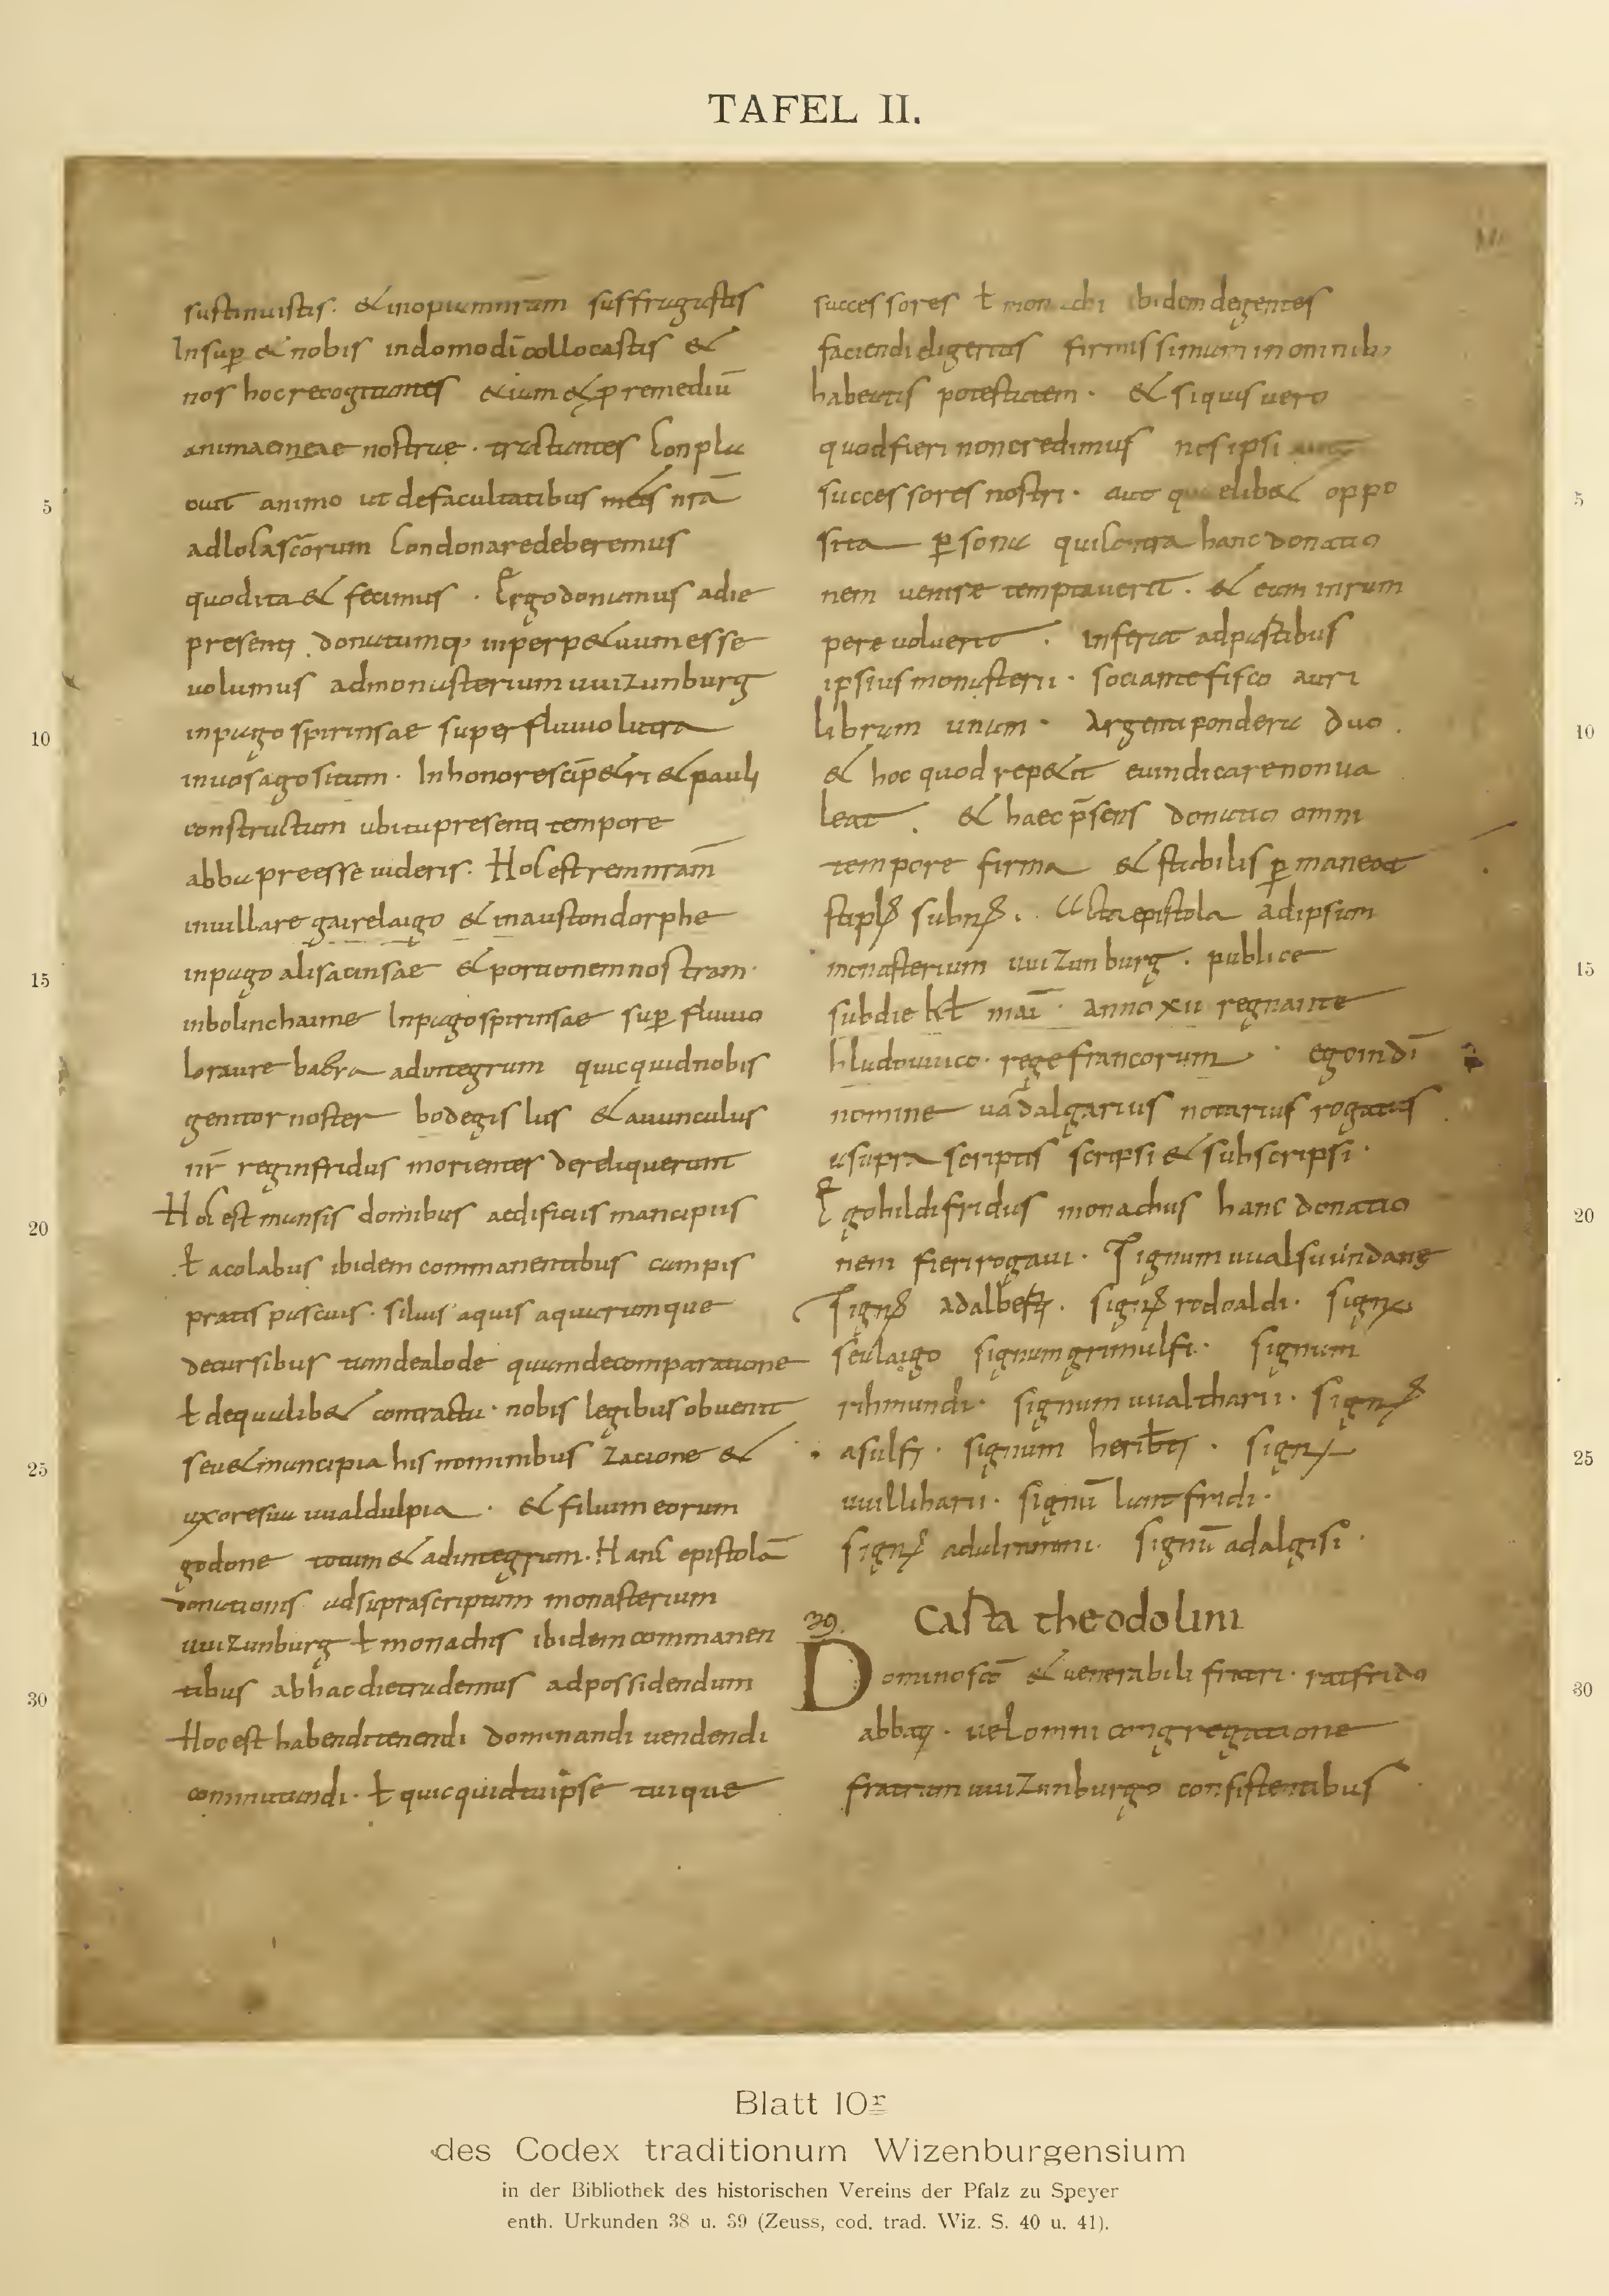 TAFEL II.
sustinuistis. & inopiamnram suffragastis
Insup & nobis indomodi collocastis &
nos hoc recogitantes etiam & p remediū
animae meae nostrae. tractantes Conpla
cuit animo ut defacultatibus meis nrā
adlocascōrum Condonaredeberemus
quodita & fecimus. Ergo donamus adie
presenti donatumq; inperp&uum esse
uolumus admonasterium uuizunburg
inpago spirinsae super fluuio lutra
inuosago situm. Inhonore scī p&ri & pauli
constructum ubi tu presenti tempore
abba preesse uideris. Hocest remnram
inuillare gairelaigo & inaustondorphe
inpago alisacinsae & portionem nostram.
inbolinchaime Inpago spirinsae sup fluuio
loraure bacra adintegrum quicquidnobis
genitor noster bodegislus & auunculus
nr reginfridus morientes dereliquerunt
Hoc est mansis domibus aedificiis mancipiis
ł acolabus ibidem commanentibus campis
pratis pascuis. siluis aquis aquarumque
decursibus tamdealode quamdecomparatione
ł dequalib& contractu. nobis legibus obuenit
seu & mancipia his nominibus Zacione &
uxoresua uualdulpia. & filium eorum
godone totum & adintegrum. Hanc epistolā
donationis adsuprascriptum monasterium
uuizunburg ł monachis ibidem commanen
tibus abhacdietrademus adpossidendum
Hoc est habendi tenendi dominandi uendendi
commutandi. ł quicquid tu ipse tuique
successores ł monachi ibidem degentes
faciendi eligeritis firmissimum in omnib;
habeatis potestatem. & siquis uero
quodfieri noncredimus nos ipsi aut
successores nostri. aut qualelib& oppo
sita psona qui Contra hanc donatio
nem uenire temptauerit. & eam inrum
pere uoluerit. Inferat adpartibus
ipsius monasterii. sociante fisco auri
libram unam. Argenti pondera duo.
& hoc quod rep&it euindicare nonua
leat. & haec p̄sens donatio omni
tempore firma & stabilis pmaneat
stipl subn. Acta epistola adipsum
monasterium uuizunburg. publice
subdie kł mai. anno xii regnante
hludouuico. rege francorum. ego in dī
nomine uādalgarius notarius rogatus
asupra scriptis scripsi & subscripsi.
Ego hildifridus monachus hanc donatio
nem fieri rogaui. Signum uualsuuindane
Sign adalberti. sign rodoaldi. sign
seulaigo signum grimulfi. signum
rihmundi. signum uualtharii. sign
asulfi. signum heriberti. sign
uuilliharii. signū lantfridi.
sign adulrammi. signū adalgisi.
39. Carta theodolini
Dominoscō & uenerabili fratri. ratfrido
abbati. uel omni congregatione
fratrum uuizunburgo consistentibus
5
10
15
20
25
30
5
10
15
20
25
30
Blatt 10r
des Codex traditionum Wizenburgensium
in der Bibliothek des historischen Vereins der Pfalz zu Speyer
enth. Urkunden 38 u. 39 (Zeuss, cod. trad. Wiz. S. 40 u. 41).